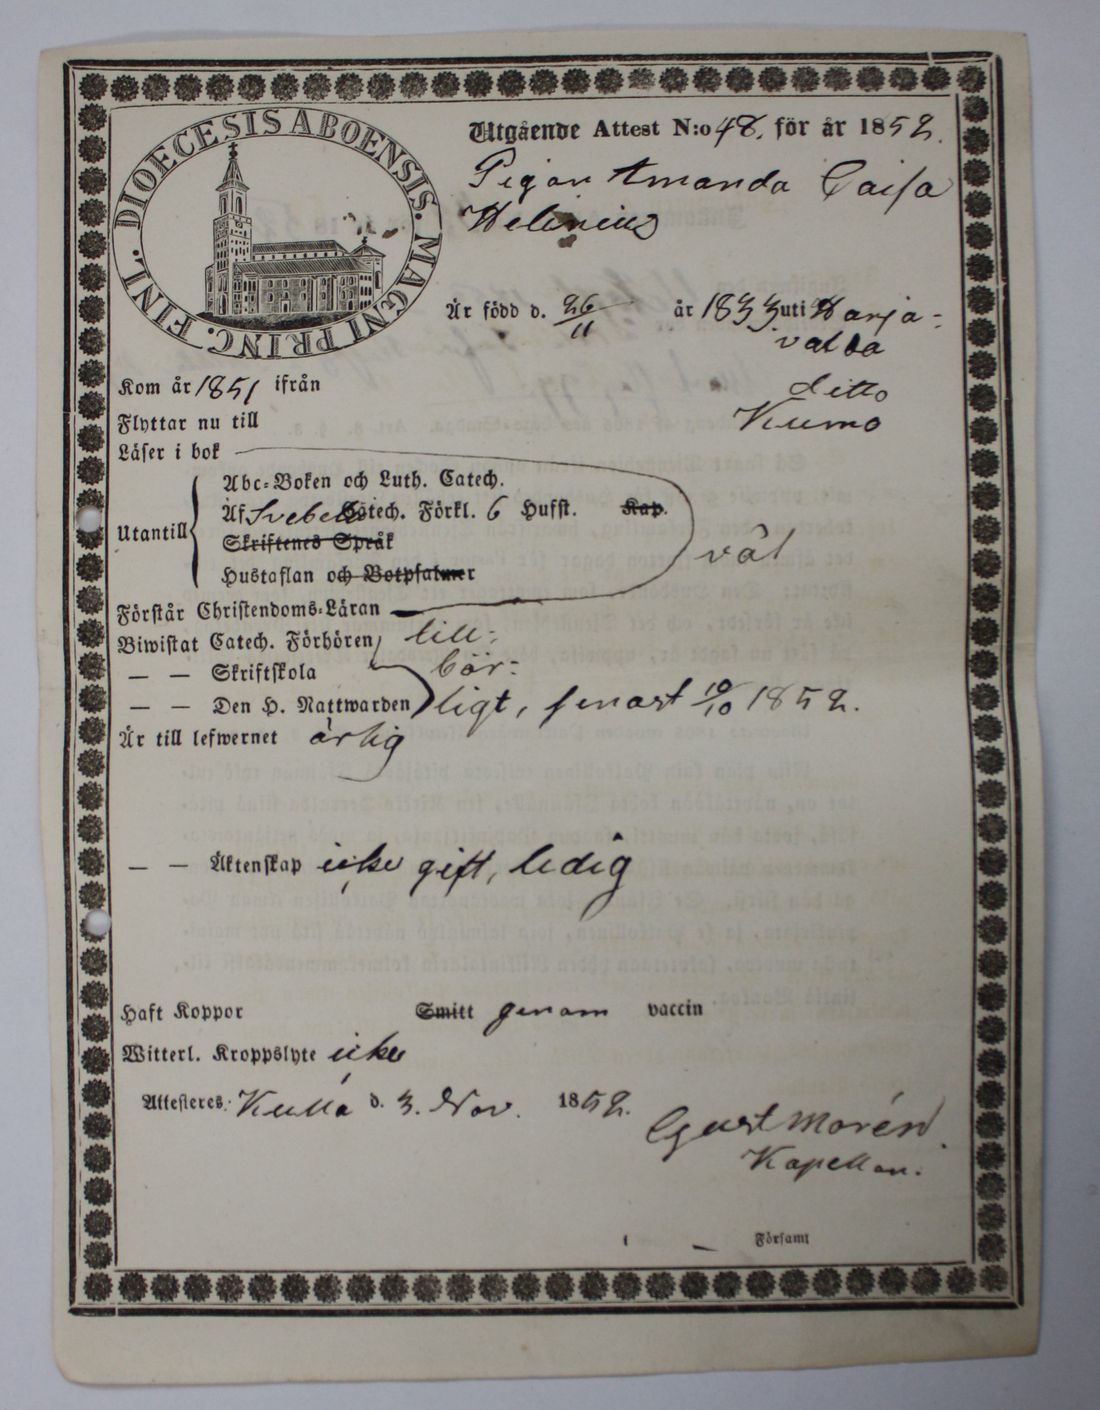 DIOECESIS ABOENSIS. MAGNI PRINC. FINL.
Utgående Attest N:o 48. för år 1852.
Pigan Amanda Caisa
Helenius
Är född d. 26/11 år 1833 uti Harja-
valda
Kom år 1851 ifrån ditto
Flyttar nu till Kumo
Läser i bok
Abc-Boken och Luth. Catech.
Utantill Af Svebelii Catech. Förkl. 6 Hufst. Kap.
väl
Skriftenes Språk
Hustaflan och Botpsalmer
Förstår Christendoms-Läran
Biwistat Catech. Förhören till-
— — Skriftskola bör-
— — Den H. Nattwarden ligt, senast 10/10 1852.
Är till lefwernet ärlig
— — Äktenskap icke gift, ledig
Haft Koppor Smitt genom vaccin
Witterl. Kroppslyte icke
Attesteres. Kulla d. 3. Nov. 1852.
Gust Morén
Kapellan.
Församl